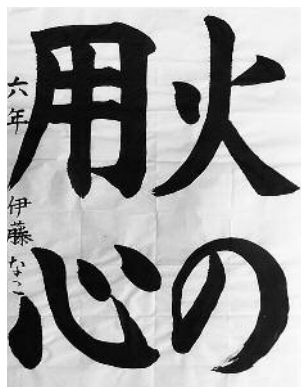 火の
用心
六年 伊藤なこ